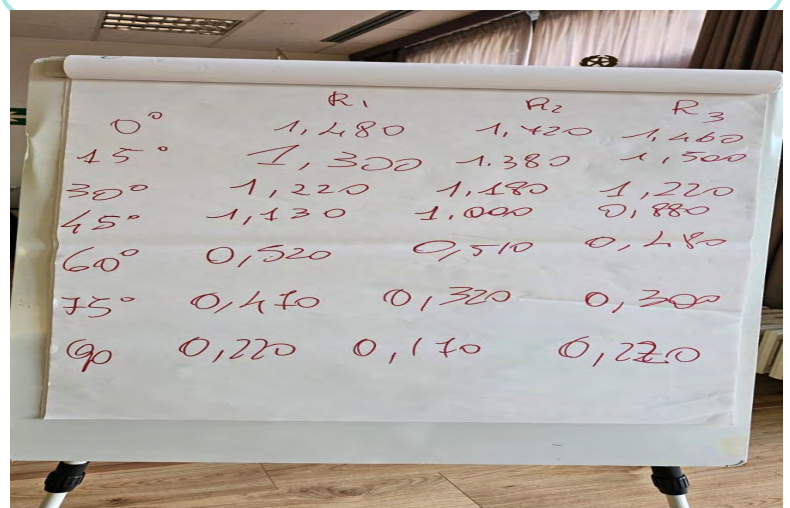 R1 R2 R3
0° 1,480 1,720 1,460
15° 1,300 1.380 1,500
30° 1,220 1,180 1,220
45° 1,130 1,000 0,880
60° 0,520 0,510 0,480
75° 0,470 0,320 0,300
90 0,220 0,170